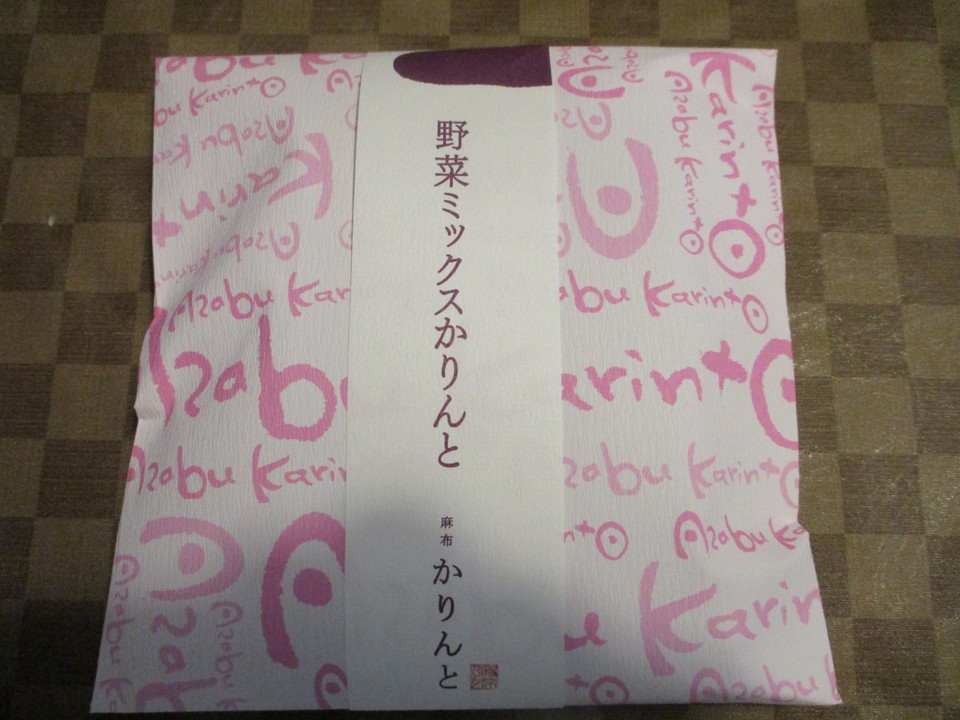 野菜ミックスかりんと
麻布
かりんと
Azabu Karinto
Azabu Karinto
Azabu Karinto
Azabu Karin
Karinto
Azabu
Karinto